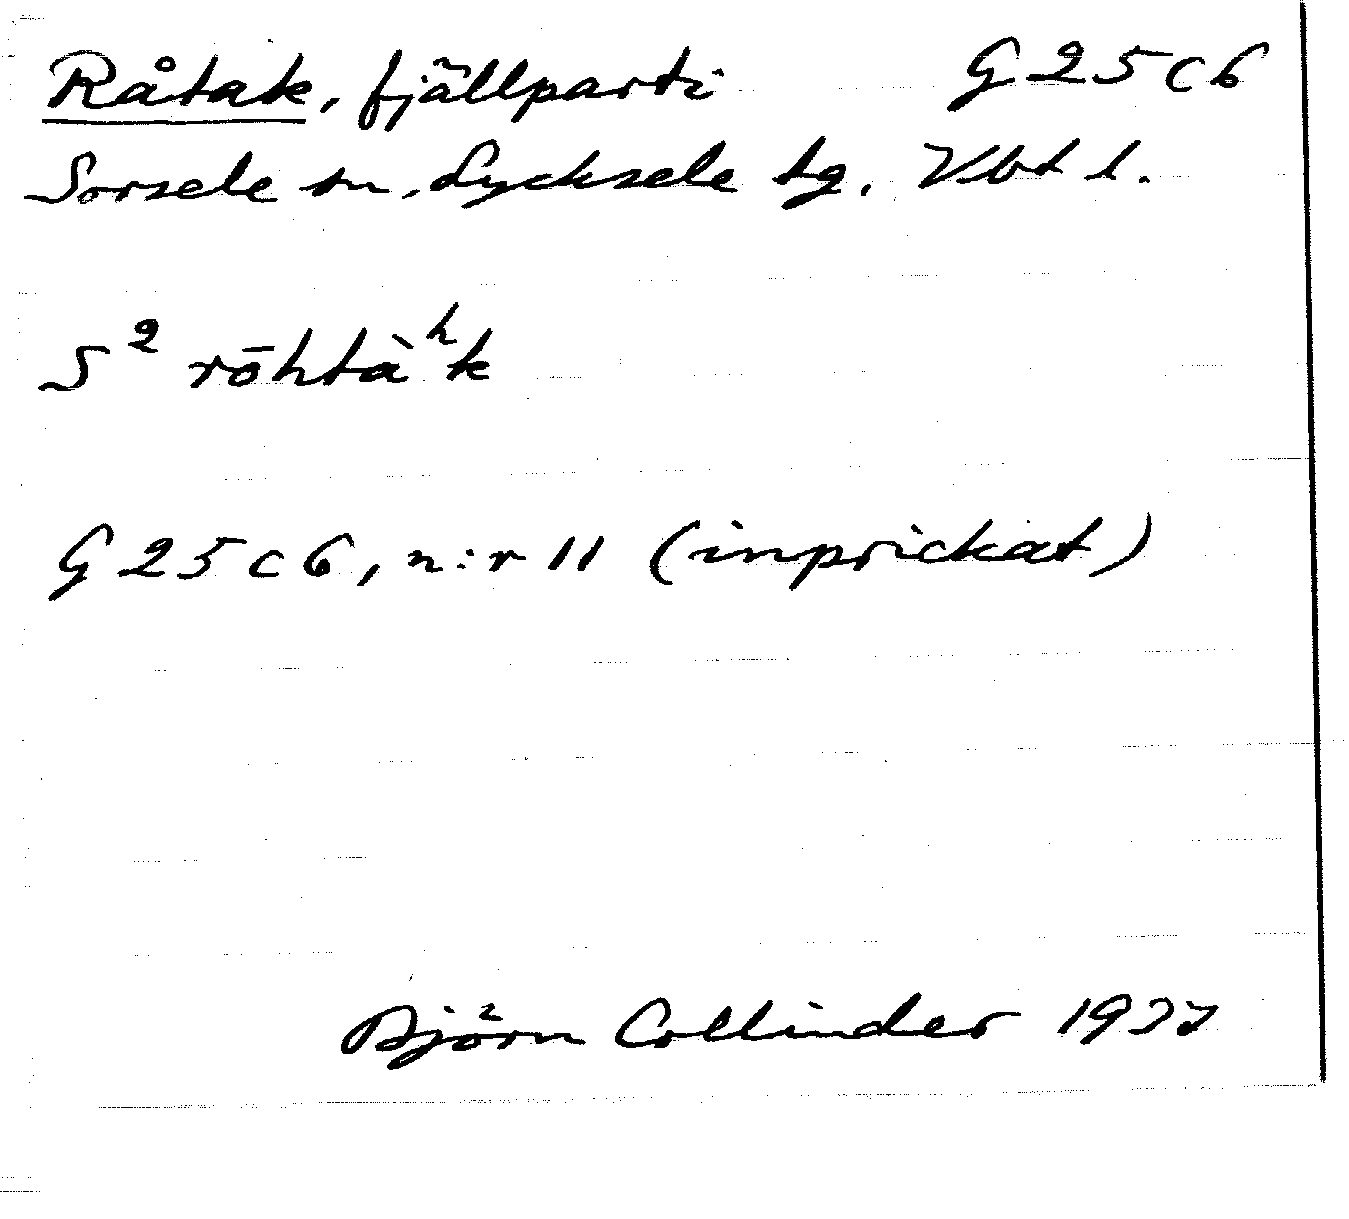 Råtak, fjällparti G25c6
Sorsele sn, Lycksele tg, Vbt l.
S² rōhtàʰk
G25c6, n:r 11 (inprickat)
Björn Collinder 1937